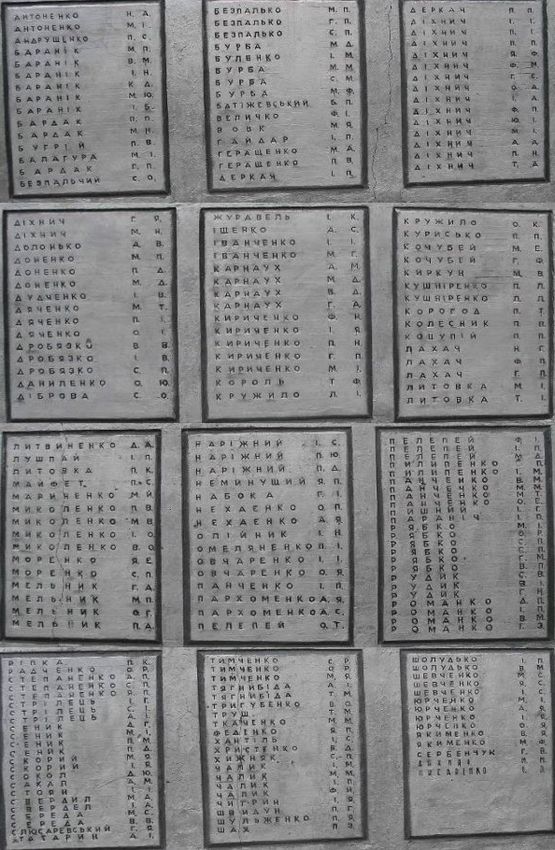 АНТОНЕНКО Н. А.
АНТОНЕНКО М. І.
АНДРУЩЕНКО П. С.
БАРАНІК М. П.
БАРАНІК В. М.
БАРАНІК І. Н.
БАРАНІК К. Д.
БАРАНІК М. Ю.
БАРАНІК І. Б.
БАРДАК П. П.
БАРДАК М. Н.
БУГРІЙ П. В.
БАЛАГУРА М. І.
БАРДАК Г. П.
БЕЗПАЛЬЧИЙ С. О.
БЕЗПАЛЬКО М. П.
БЕЗПАЛЬКО Г. П.
БЕЗПАЛЬКО С. П.
БУРБА М. Д.
БУЛЕНКО І. М.
БУРБА М. М.
БУРБА С. М.
БУРБА М. Ф.
БАТІЖЕВСЬКИЙ Б. П.
ВЕЛИЧКО Ф. І.
ВОВК М. Я.
ГАЙДАР І. П.
ГЕРАЩЕНКО М. А.
ГЕРАЩЕНКО П. В.
ДЕРКАЧ І. П.
ДЕРКАЧ П. П.
ДІХНИЧ І. І.
ДІХНИЧ П. П.
ДІХНИЧ Я. Ф.
ДІХНИЧ О. М.
ДІХНИЧ Г. С.
ДІХНИЧ О. А.
ДІХНИЧ І. А.
ДІХНИЧ Г. П.
ДІХНИЧ Ф. Ю.
ДІХНИЧ М. І.
ДІХНИЧ Д. М.
ДІХНИЧ А. П.
ДІХНИЧ П. Н.
ДІХНИЧ Т. А.
ДІХНИЧ Г. Я.
ДІХНИЧ М. Н.
ДОЛОНЬКО А. В.
ДОНЕНКО М. П.
ДОНЕНКО П. Д.
ДОНЕНКО М. Д.
ДУДЧЕНКО І. В.
ДЯЧЕНКО М. Т.
ДЯЧЕНКО П. І.
ДЯЧЕНКО О. І.
ДРОБЯЗКО В. В.
ДРОБЯЗКО І. В.
ДРОБЯЗКО С. П.
ДАНИЛЕНКО О. Ю.
ДІБРОВА С. О.
ЖУРАВЕЛЬ І. К.
ІЩЕНКО А. С.
ІВАНЧЕНКО І. І.
ІВАНЧЕНКО М. Г.
КАРНАУХ А. М.
КАРНАУХ М. Д.
КАРНАУХ В. Д.
КАРНАУХ Г. А.
КИРИЧЕНКО Ф. Н.
КИРИЧЕНКО І. Я.
КИРИЧЕНКО П. Н.
КИРИЧЕНКО Г. П.
КИРИЧЕНКО М. Г.
КОРОЛЬ Т. Ф.
КРУЖИЛО Л. І.
КРУЖИЛО О. К.
КУРИСЬКО П. П.
КОЧУБЕЙ М. Е.
КОЧУБЕЙ Г. Ф.
КИРКУН М. В.
КУШНІРЕНКО П. П.
КУШНІРЕНКО П. П.
КОРОГОД П. Т.
КОЛЕСНИК П. П.
КОЦУПІЙ П. П.
ЛАХАЧ Н. Г.
ЛАХАЧ Ф. П.
ЛАХАЧ Г. П.
ЛИТОВКА М. І.
ЛИТОВКА Т. І.
ЛИТВИНЕНКО Д. А.
ЛУШПАЙ І. П.
ЛИТОВКА П. К.
МАЙФЕТ П. С.
МАРИНЕНКО М. Й.
МИКОЛЕНКО П. В.
МИКОЛЕНКО М. В.
МИКОЛЕНКО І. О.
МИКОЛЕНКО В. О.
МОРЕНКО Я. Е.
МОРЕНКО С. П.
МЕЛЬНИК Г. А.
МЕЛЬНИК М. П.
МЕЛЬНИК О. Г.
МЕЛЬНИК П. А.
НАРІЖНИЙ І. С.
НАРІЖНИЙ П. Ю.
НАРІЖНИЙ П. Д.
НЕМИНУЩИЙ Я. П.
НАБОКА Г. І.
НЕХАЕНКО О. П.
НЕХАЕНКО А. Я.
ОЛІЙНИК І. Н.
ОМЕЛЯНЕНКО П. І.
ОВЧАРЕНКО І. І.
ОВЧАРЕНКО О. Я.
ПАНЧЕНКО І. П.
ПАРХОМЕНКО А. Я.
ПАРХОМЕНКО А. С.
ПЕЛЕПЕЙ О. Т.
ПЕЛЕПЕЙ Ф. І.
ПЕЛЕПЕЙ І. П.
ПЕЛЕПЕЙ М. Д.
ПИЛИПЕНКО П.
ПИЛИПЕНКО І. М.
ПАНЧЕНКО В. М.
ПАНЧЕНКО М. М.
ПАНЧЕНКО М. О.
ПИШНИЙ І. Г.
ПАРАНІЧ І. П.
РЯБКО М. О.
РЯБКО І. Р.
РЯБКО О. П.
РЯБКО С. М.
РЯБКО В. П.
РУДИК С. П.
РУДИК В.
РУДИК Г. Н.
РОМАНКО Д. П.
РОМАНКО І. П.
РОМАНКО В. М.
РОМАНКО Г. З.
РІПКА П. К.
РАДЧЕНКО О. Р.
СТЕПАНЕНКО А. П.
СТЕПАНЕНКО С. П.
СТЕПАНЕНКО Я. П.
СТРІЛЕЦЬ І. Г.
СТРІЛЕЦЬ С. І.
СТРІЛЕЦЬ А. Г.
СЕНИК М.
СЕНИК І. М.
СЕНИК П. П.
СЕНИК П. Д.
СКОРИЙ М. Я.
СКОРИЙ І. Я.
СОКОЛ Д. Ю.
САКАЛ А. М.
СТОЯН І. І.
СВЕРДИЛ М. Д.
СВЕРДЕЛ І. А.
СЕРЕДА М. С.
СЕРЕДА В. В.
СЛЮСАРЕВСЬКИЙ Г. Я.
ТАТАРИН А. І.
ТИМЧЕНКО С. Р.
ТИМЧЕНКО О. Р.
ТИМЧЕНКО М. Я.
ТЯГНИБІДА А. І.
ТЯГНИБІДА Т. М.
ТРИГУБЕНКО В. О.
ТРУШ Т. М.
ТКАЧЕНКО М. М.
ФЕДЕНКО Я. П.
ХАНТІЛЬ Т. С.
ХРИСТЕНКО В. Д.
ХИЖНЯК С. П.
ЧАЛИК М. І.
ЧАЛИК М. М.
ЧАЛИК І. П.
ЧАЛИК Ф. Н.
ЧИГРИН І. Я.
ШВИДУН П. Г.
ШУЛЬЖЕНКО П. Г.
ШАХ П. З.
ШОЛУДЬКО І. П.
ШОЛУДЬКО В. М.
ШЕВЧЕНКО М. С.
ШЕВЧЕНКО Я. С.
ШЕВЧЕНКО І. І.
ЮРЧЕНКО М. О.
ЮРЧЕНКО А. Я.
ЮРЧЕНКО І. Ю.
ЮРЧЕНКО О. Я.
ЯКИМЕНКО В. В.
ЯКИМЕНКО М. Ф.
СЕРБЕНЧУК Г. П.
ПИСАРЕНКО